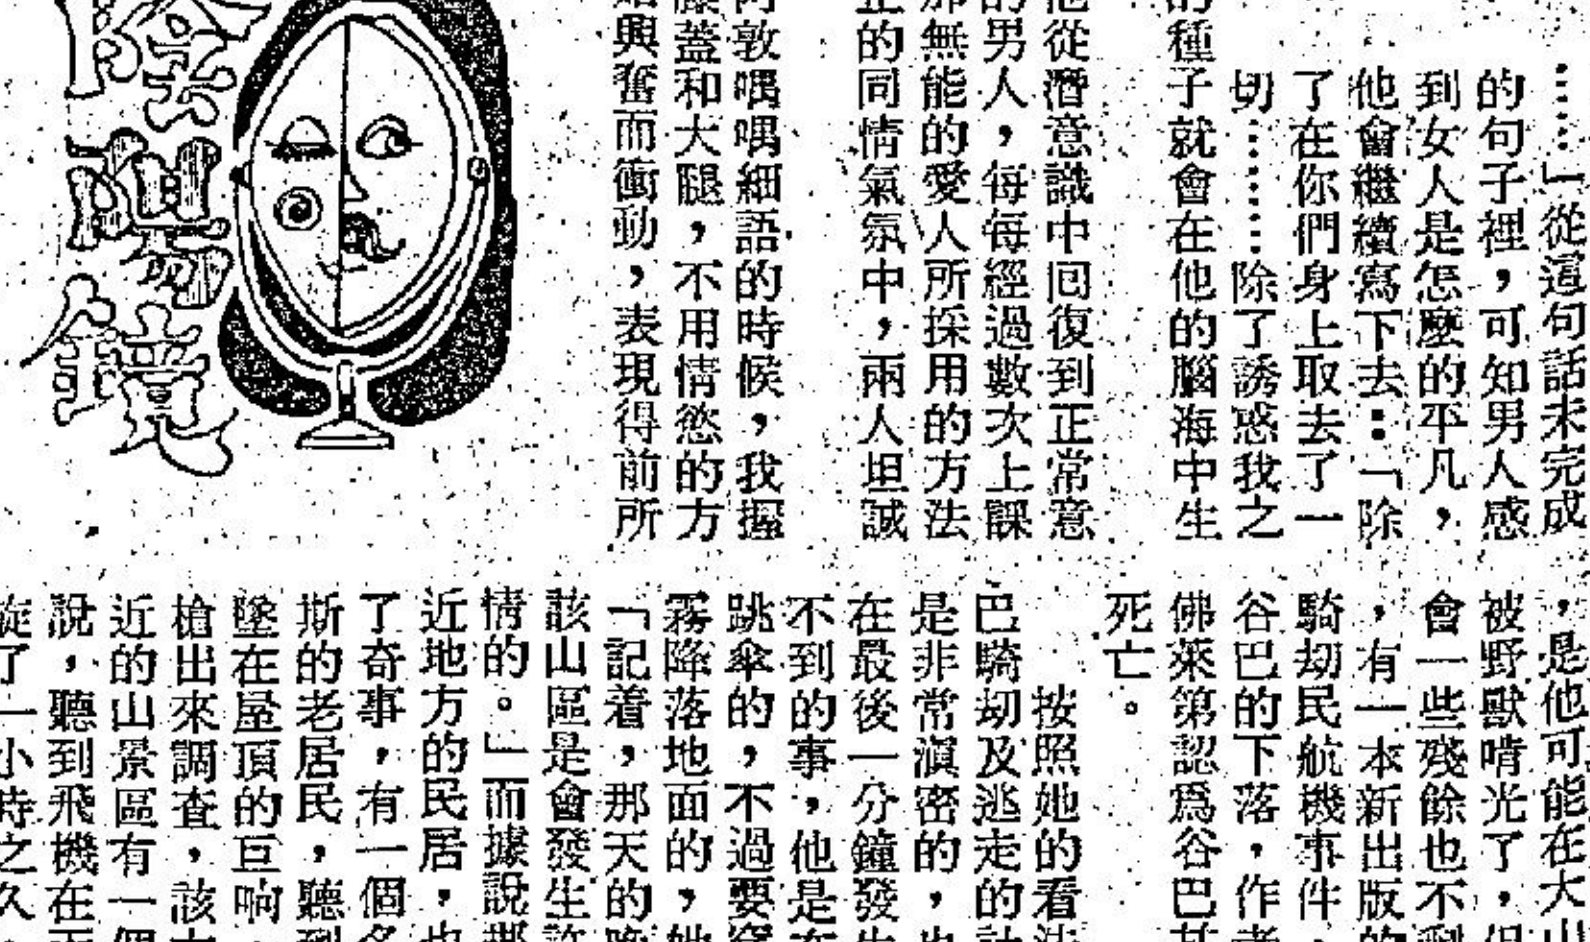 ……」從這句話未完成
的句子裡，可知男人感
到女人是怎麼的平凡，
他會繼續寫下去：「除
了在你們身上取去了一
切………除了誘惑我之
的種子就會在他的腦海中生
他從潛意識中回復到正常意
的男人，每每經過數次上課
那無能的愛人所採用的方法
正的同情氣氛中，兩人坦誠
敦喁喁細語的時候，我握
膝蓋和大腿，不用情慾的方
興奮而衝動，表現得前所
陰陽鏡
，是他可能在大山
被野獸啃光了，但
會一些殘餘也不剩
，有一本新出版的
騎劫民航機事件，
谷巴的下落，作者
佛萊第認爲谷巴甚
死亡。
按照她的看法
巴騎刧及逃走的計
是非常滇密的，也
在最後一分鐘發生
不到的事，他是在
跳傘的，不過要穿
霧降落地面的，她
「記着，那天的晚
該山區是會發生許
情的。」而據說那
近地方的民居，也
了奇事，有一個名
斯的老居民，聽到
墜在屋頂的巨响，
槍出來調查，該
近的山景區有一個
說，聽到飛機在
旋了一小時之久，